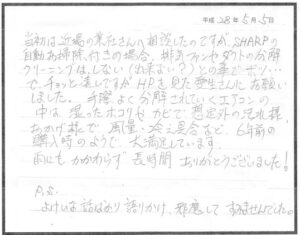 平成28年5月5日
当初は近場の業社さんへ相談したのですが、SHARPの
自動お掃除付きの場合、排気ファンやダクトの分解
クリーニングは、しない(出来ない?)との事でガッ…
でチョッと遠いですがHPを見た愛生さんにお願い
しました。手際よく分解されていくエアコンの
中は湿ったホコリやカビで想定外の汚れ様、
おかげ様で風量・冷え具合など、6年前の
購入時のようで大満足しています。
雨にもかかわらず長時間ありがとうございました!
P.S.
よけいな話ばかり語りかけ、邪魔してすみませんでした。